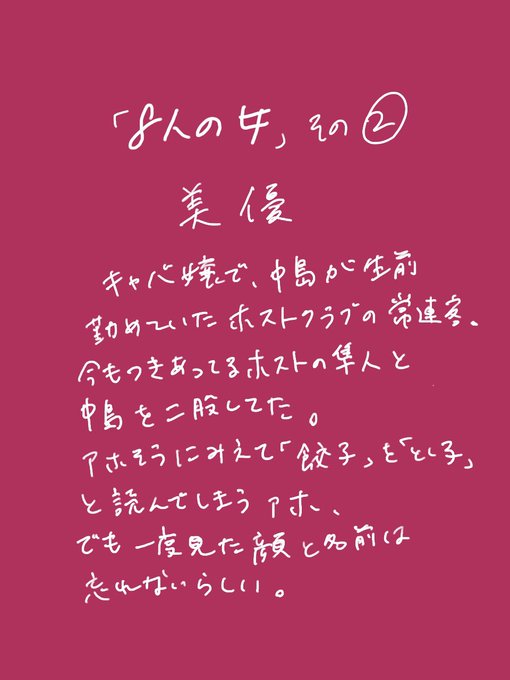 「8人の女」その②
美優
キャバ嬢で、中島が生前
勤めていたホストクラブの常連客。
今もつきあってるホストの隼人と
中島を二股してた。
アホそうにみえて「餃子」を「とし子」
と読んでしまうアホ、
でも一度見た顔と名前は
忘れないらしい。